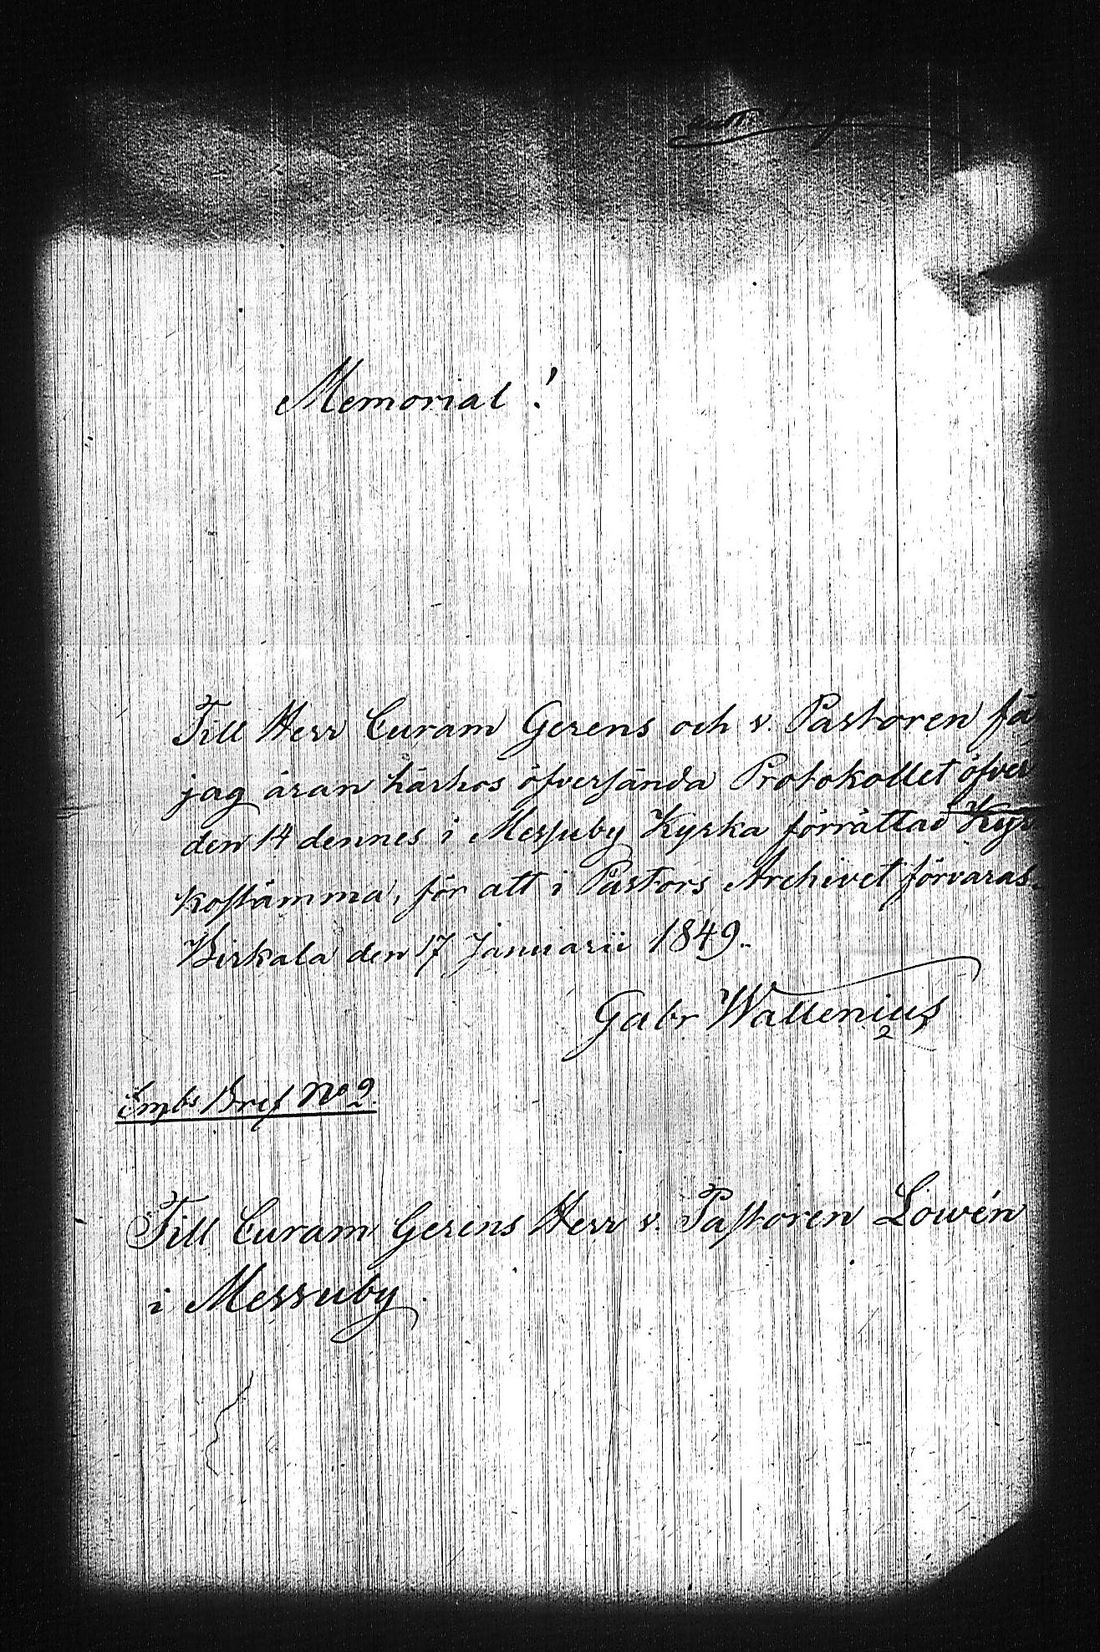 Memorial!
Till Herr Curam Gerens och v. Pastoren få
jag äran härhos öfversända Protokollet öfver
den 14 dennes i Messuby Kyrka förrättad Kyr
kostämma, för att i Pastors Archivet förvaras.
Birkala den 17 Januarii 1849.
Gabr Wallenius
Embs Bref No 2.
Till Curam Gerens Herr v. Pastoren Lowén
i Messuby.